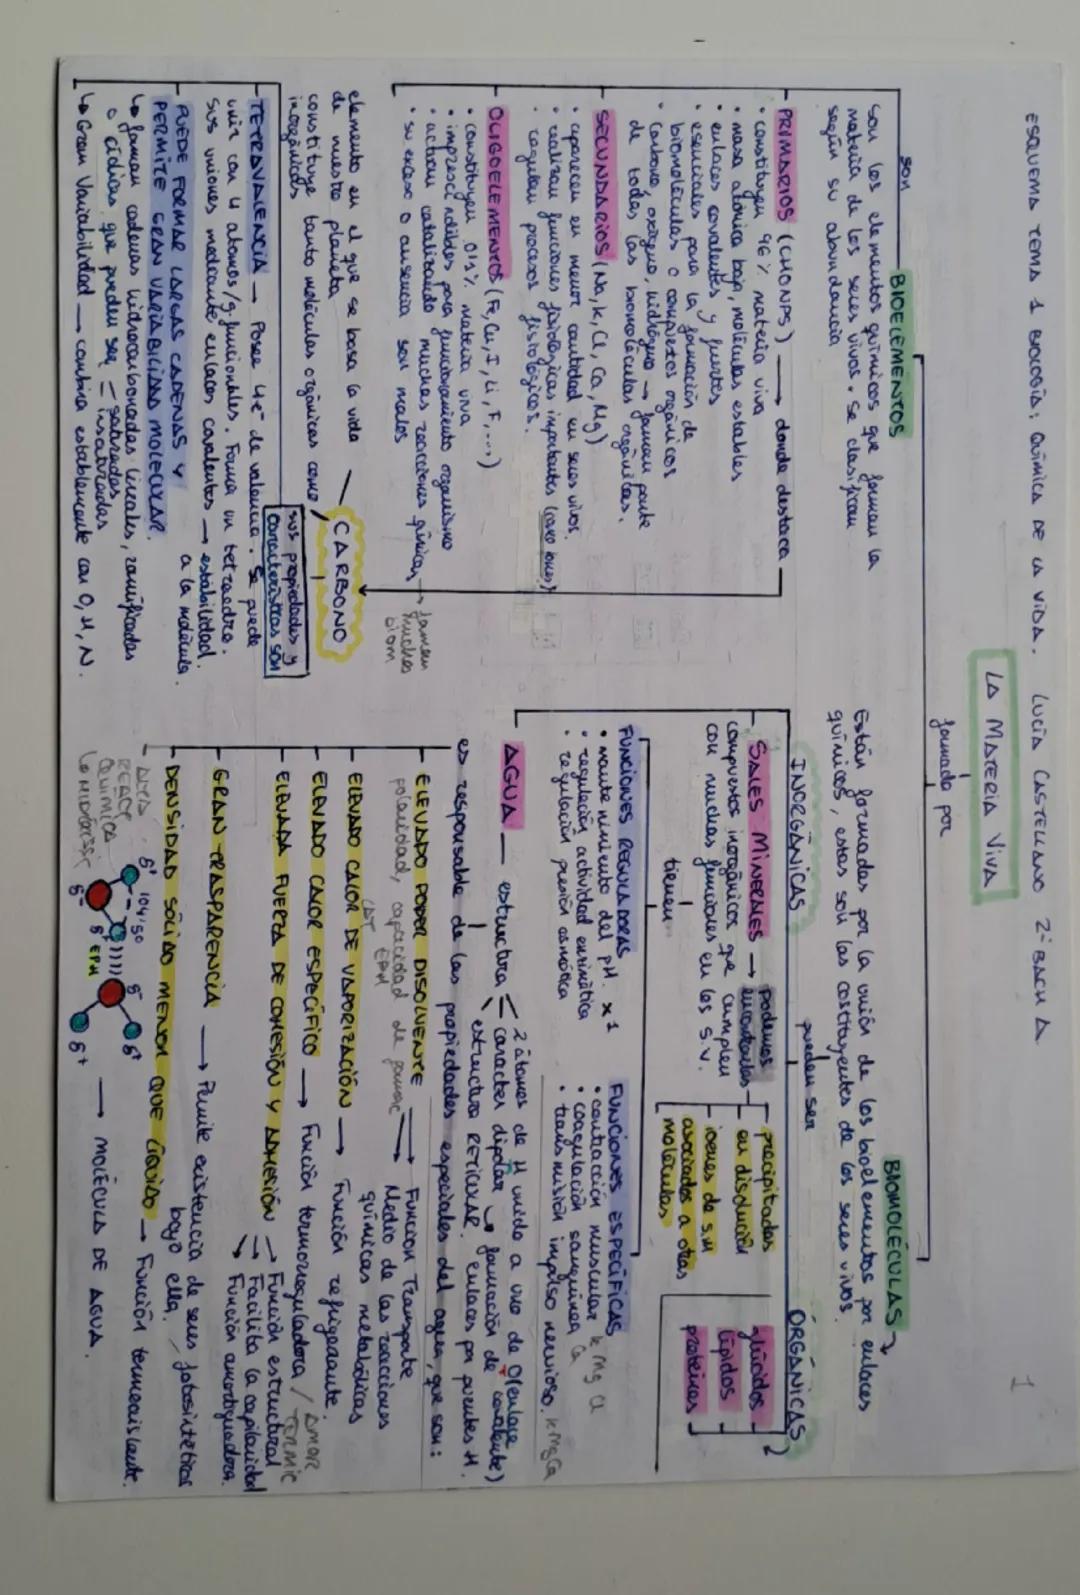 ESQUEMA TEMA 1 BIOLOGÍA: QUÍMICA DE LA VIDA. LUCÍA CASTELLANO 2º BACH A
1
LA MATERIA VIVA
formado por
BIOELEMENTOS
son
Son los elementos químicos que forman la
materia de los seres vivos. Se clasifican
según su abundancia
PRIMARIOS (CHONPS) → donde destaca
• constituyen 96% materia viva
• masa atómica baja, moléculas estables
• enlaces covalentes y fuertes
• esenciales para la formación de
biomoléculas o compuestos orgánicos
• Carbono, oxígeno, hidrógeno → forman parte
de todas las biomoléculas orgánicas.
SECUNDARIOS (Na, K, Cl, Ca, Mg)
• aparecen en menor cantidad en seres vivos.
• realizan funciones fisiológicas importantes (como iones)
• regulan procesos fisiológicos.
OLIGOELEMENTOS (Fe, Cu, I, Li, F, ...)
• constituyen 0'1% materia viva
• imprescindibles para funcionamiento organismo
• actúan catalizando muchas reacciones químicas → forman
muchas
biom
• su exceso o ausencia son malos
elemento en el que se basa la vida
de nuestro planeta
CARBONO
constituye tanto moléculas orgánicas como
inorgánicas
sus propiedades y
características son
TETRAVALENCIA → Posee 4e⁻ de valencia. Se puede
unir con 4 átomos/g. funcionales. Forma un tetraedro.
sus uniones mediante enlaces covalentes → estabilidad
a la molécula.
PUEDE FORMAR LARGAS CADENAS Y
PERMITE GRAN VARIABILIDAD MOLECULAR.
↳ forman cadenas hidrocarbonadas lineales, ramificadas
o cíclicas que pueden ser = saturadas
insaturadas
↳ Gran Variabilidad → combina establemente con O, H, N.
BIOMOLÉCULAS
Están formadas por la unión de los bioelementos por enlaces
químicos, estas son las constituyentes de los seres vivos.
pueden ser
INORGÁNICAS
ORGÁNICAS
glúcidos
lípidos
proteínas
SALES MINERALES → podemos
encontrarlas
compuestos inorgánicos que cumplen
con muchas funciones en los S.V.
precipitadas
en disolución
iones de s.M
asociados a otras
moléculas
tienen
FUNCIONES REGULADORAS
• mantenimiento del pH.
• regulación actividad enzimática
• regulación presión osmótica
FUNCIONES ESPECÍFICAS
• contracción muscular K Mg Cl
• coagulación sanguínea Ca
• transmisión impulso nervioso. K Mg Ca
AGUA — estructura = 2 átomos de H unido a uno de O (enlace
covalente)
caracter dipolar ↳ formación de
estructura RETICULAR. enlaces por puentes H.
es responsable de las propiedades especiales del agua, que son:
ELEVADO PODER DISOLVENTE → Función Transporte
→ Medio de las reacciones
químicas metabólicas
polaridad, capacidad de formar
EPH
ELEVADO CALOR DE VAPORIZACIÓN → Función refrigerante.
ELEVADO CALOR ESPECÍFICO → Función termorreguladora / AMOR
TERMIC
ELEVADA FUERZA DE COHESIÓN Y ADHESIÓN → Función estructural
→ Facilita la capilaridad
→ Función amortiguadora.
GRAN TRASPARENCIA → Permite existencia de seres fotosintéticos
bajo ella.
DENSIDAD SÓLIDO MENOR QUE LÍQUIDO → Función termoaislante.
ALTA
REACT
QUÍMICA
δ⁺ 104'50 δ⁻ δ⁺
δ⁻ δ⁺ EPH δ⁺
→ MOLÉCULA DE AGUA.